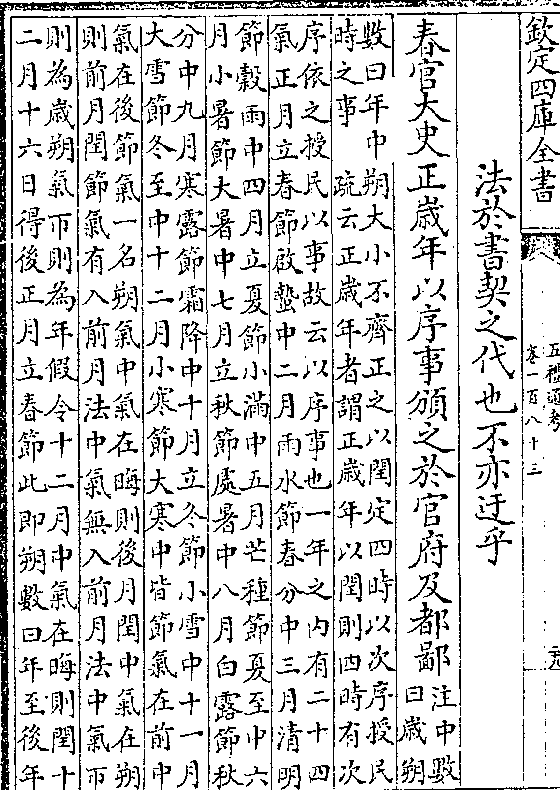 欽定四庫全書
五禮通考
卷一百八十三
法於書契之代也不亦迂乎
春官大史正歲年以序事頒之於官府及都鄙
注中數
曰歲朔
數曰年中朔大小不齊正之以閏定四時以次序授民
時之事　疏云正歲年者謂正歲年以閏則四時有次
序依之授民以事故云以序事也一年之內有二十四
氣正月立春節啟蟄中二月雨水節春分中三月清明
節穀雨中四月立夏節小滿中五月芒種節夏至中六
月小暑節大暑中七月立秋節處暑中八月白露節秋
分中九月寒露節霜降中十月立冬節小雪中十一月
大雪節冬至中十二月小寒節大寒中皆節氣在前中
氣在後節氣一名朔氣中氣在晦則後月閏中氣在朔
則前月閏節氣有入前月法中氣無入前月法中氣帀
則為歲朔氣帀則為年假令十二月中氣在晦則閏十
二月十六日得後正月立春節此即朔數曰年至後年